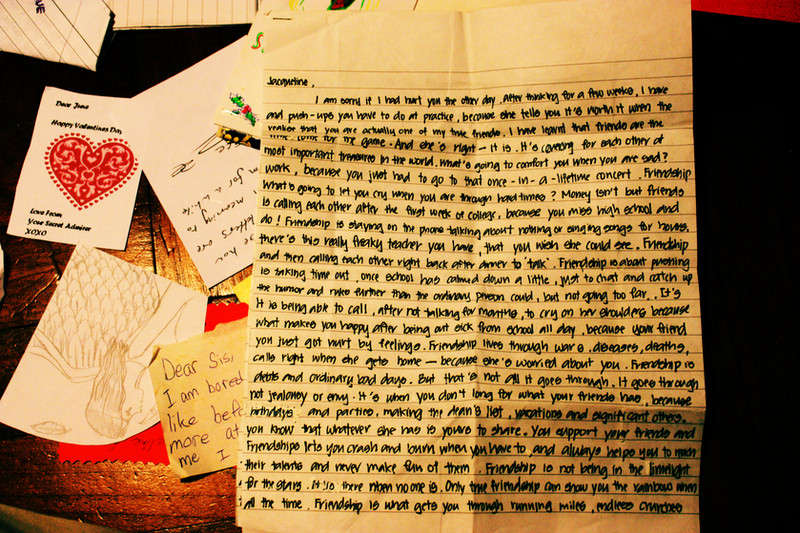 Dear
Happy Valentines Day
Love From
Your Secret Admirer
XOXO
for a while
meaning to
letters are
Dear Sis,
I am bored
like befo
more at
me I
Jacqueline,
I am sorry if I had hurt you the other day. After thinking for a few weeks, I have
and push-ups you have to do at practice, because she tells you it's worth it when the
realize that you are actually one of my true friends. I have learned that friends are the
time come for the game. And she's right — it is. It's caring for each other at
most important treasures in the world. What's going to comfort you when you are sad?
work, because you just had to go to that once-in-a-lifetime concert. Friendship
What's going to let you cry when you are through hard times? Money isn't but friends
is calling each other after the first week of college, because you miss high school and
do! Friendship is staying on the phone talking about nothing or singing songs for hours,
there's this really freaky teacher you have, that you wish she could see. Friendship
and then calling each other right back after dinner to "talk". Friendship is about pushing
is taking time out, once school has calmed down a little, just to chat and catch up
the humor and rules further than the ordinary person could, but not going too far. It's
It is being able to call, after not talking for months, to cry on her shoulders because
what makes you happy after being out sick from school all day, because your friend
you just got hurt by feelings. Friendship lives through wars, diseases, deaths,
calls right when she gets home — because she's worried about you. Friendship is
debts and ordinary bad days. But that's not all it goes through. It goes through
not jealousy or envy. It's when you don't long for what your friends has, because
birthdays and parties, making the dean's list, vacations and significant others.
you know that whatever she has is yours to share. You support your friends and
Friendships lets you crash and burn when you have to, and always helps you to reach
their talents and never make fun of them. Friendship is not being in the limelight
for the stars. It is there when no one is. Only true friendship can show you the rainbow when
all the time. Friendship is what gets you through running miles, endless crunches